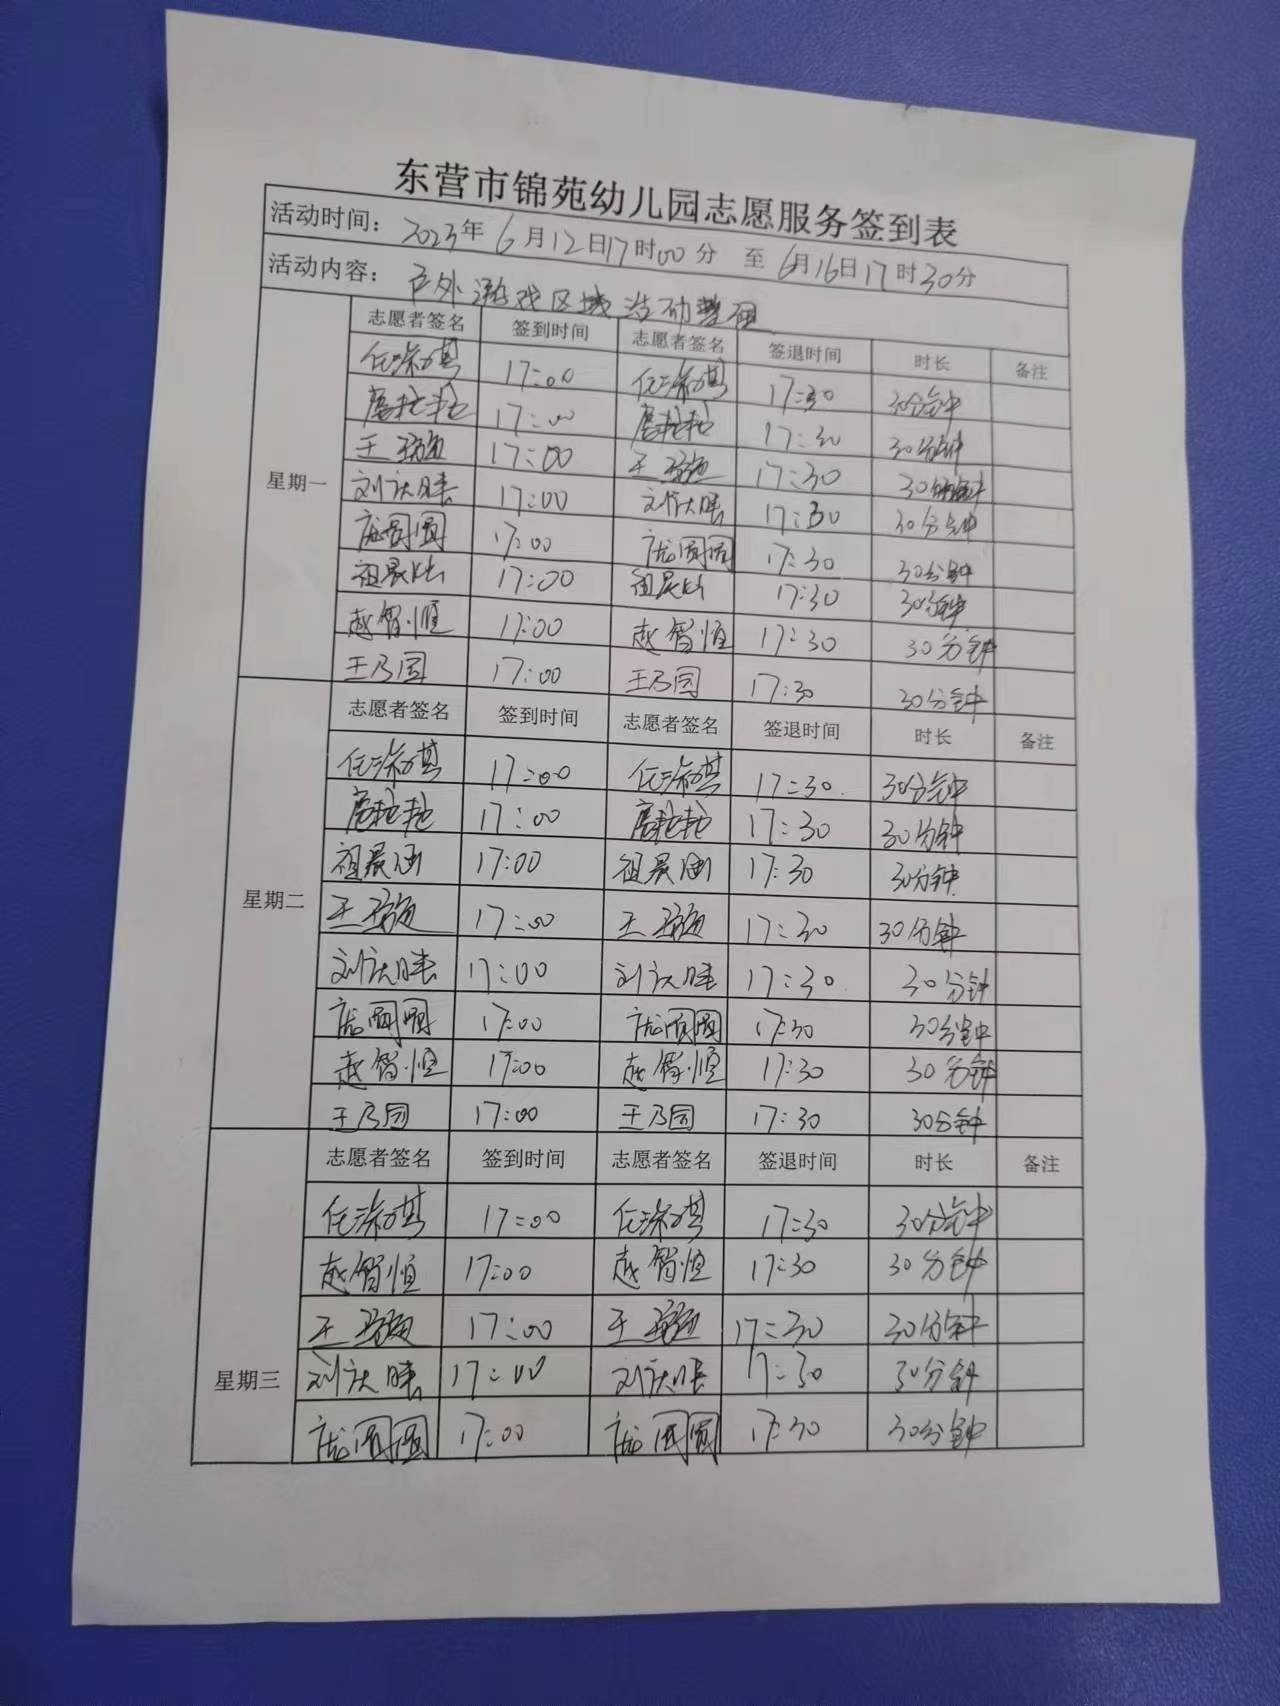 东营市锦苑幼儿园志愿服务签到表
活动时间: 2023年6月12日17时00分 至 6月16日17时30分
活动内容: 户外游戏区域活动整理
志愿者签名 签到时间 志愿者签名 签退时间 时长 备注
17:00 17:30 30分钟
17:00 17:30 30分钟
王 17:00 王 17:30 30分钟
刘庆 17:00 刘庆 17:30 30分钟
星期一
庞圆圆 17:00 庞圆圆 17:30 30分钟
祖晨 17:00 祖晨 17:30 30分钟
赵智恒 17:00 赵智恒 17:30 30分钟
王乃园 17:00 王乃园 17:30 30分钟
志愿者签名 签到时间 志愿者签名 签退时间 时长 备注
17:00 17:30 30分钟
17:00 17:30 30分钟
祖晨涵 17:00 祖晨涵 17:30 30分钟
星期二 王 17:00 王 17:30 30分钟
刘庆 17:00 刘庆 17:30 30分钟
庞圆圆 17:00 庞圆圆 17:30 30分钟
赵智恒 17:00 赵智恒 17:30 30分钟
王乃园 17:00 王乃园 17:30 30分钟
志愿者签名 签到时间 志愿者签名 签退时间 时长 备注
17:00 17:30 30分钟
赵智恒 17:00 赵智恒 17:30 30分钟
王 17:00 王 17:30 30分钟
星期三 刘庆 17:00 刘庆 17:30 30分钟
庞圆圆 17:00 庞圆圆 17:30 30分钟